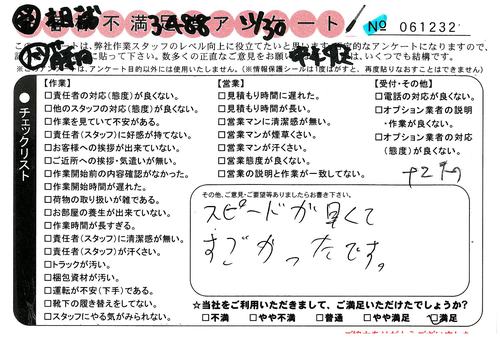 お客様不満足度アンケート
No 061232
3488 11/30
このアンケートは、弊社作業スタッフのレベル向上に役立てたいと思います。否定的なアンケートになりますので、
に貼って下さい。数多くの正直なご意見をお願い はいくつでも結構です。
※このアンケートは、アンケート目的以外には使用いたしません。(※情報保護シールは1度はがすと、再度貼りなおすことはできません)
チェックリスト
【作業】
□責任者の対応(態度)が良くない。
□他のスタッフの対応(態度)が良くない。
□作業を見ていて不安がある。
□責任者(スタッフ)に好感が持てない。
□お客様への挨拶が出来ていない。
□ご近所への挨拶・気遣いが無い。
□作業開始前の内容確認がなかった。
□作業開始時間が遅れた。
□荷物の取り扱いが雑である。
□お部屋の養生が出来ていない。
□作業時間が長すぎる。
□責任者(スタッフ)に清潔感が無い。
□責任者(スタッフ)が汗くさい。
□トラックが汚い。
□梱包資材が汚い。
□運転が不安(下手)である。
□靴下の履き替えをしてない。
□スタッフにやる気がみられない。
【営業】
□見積もり時間に遅れた。
□見積もり時間が長い。
□営業マンに清潔感が無い。
□営業マンが煙草くさい。
□営業マンが汗くさい。
□営業態度が良くない。
□営業の説明と作業が一致してない。
【受付・その他】
□電話の対応が良くない。
□オプション業者の説明
・作業が良くない。
□オプション業者の対応
(態度)が良くない。
その他、ご意見・ご要望等ありましたらお書き下さい。
スピードが早くて
すごかったです。
☆当社をご利用いただきまして、ご満足いただけたでしょうか?
□不満 □やや不満 □普通 □やや満足 □満足